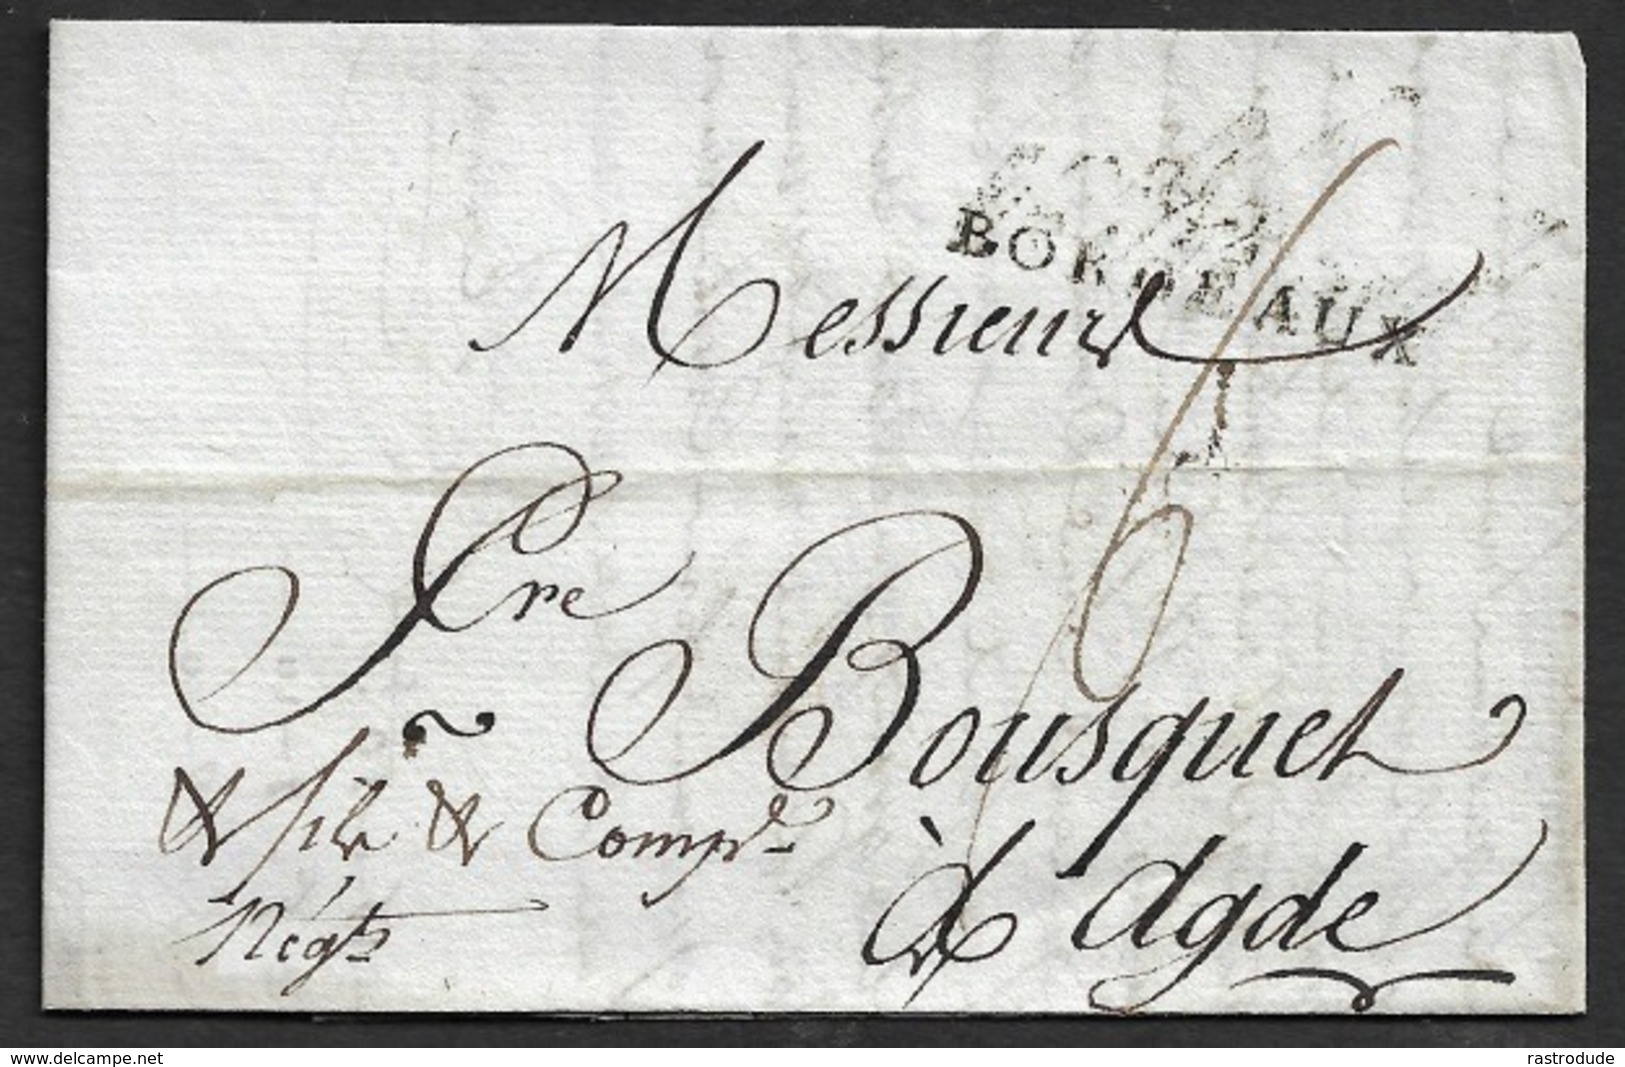 BORDEAUX
Messieurs
6
Pre Bousquet
& fils & Compe
Négts
à Agde
www.delcampe.net
rastrodude